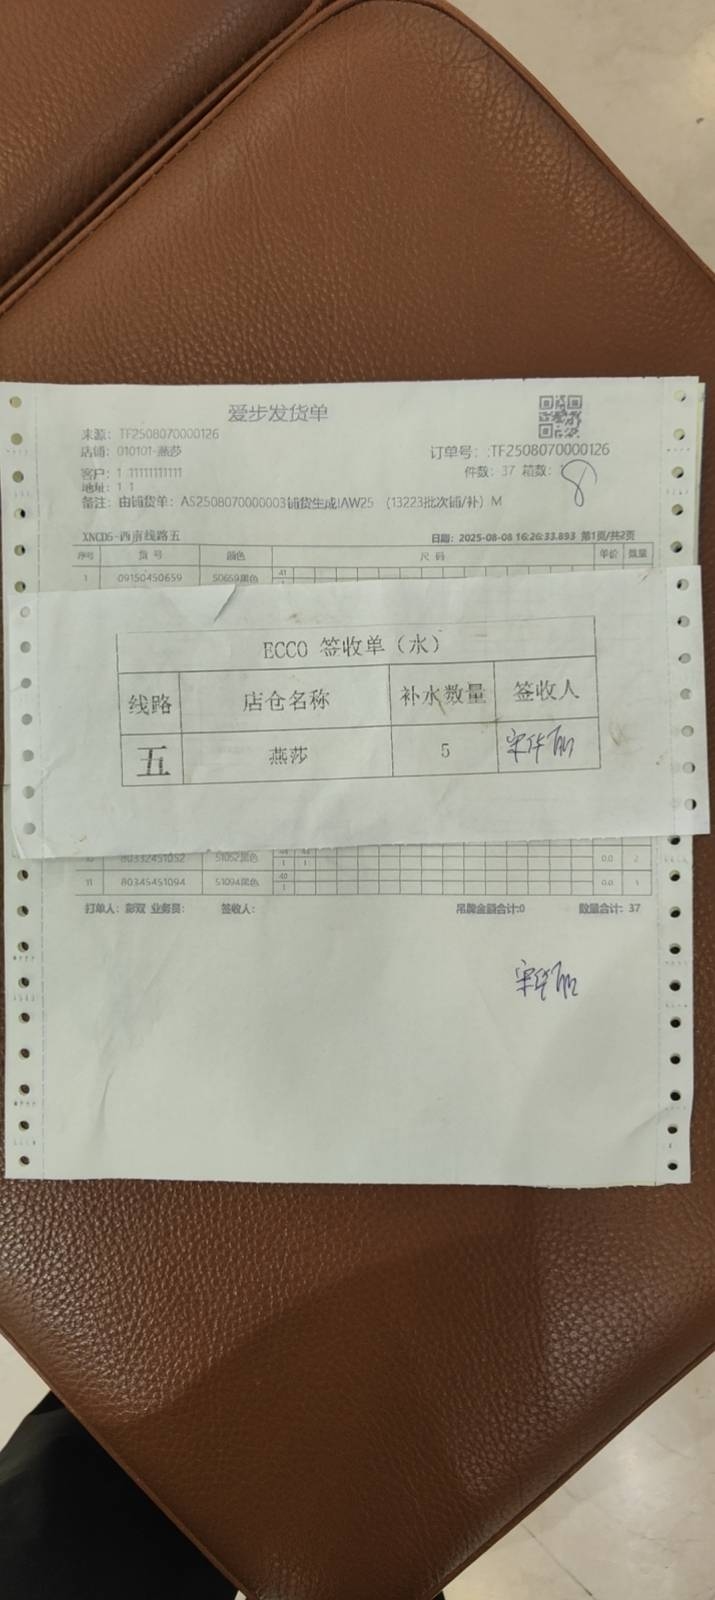 爱步发货单
来源: TF2508070000126
店铺: 010101-燕莎
订单号: :TF2508070000126
客户: 1 11111111111
件数: 37 箱数: 8
地址: 1 1
备注: 由铺货单: AS2508070000003铺货生成|AW25 (13223批次铺/补) M
XNCD5-西南线路五
日期: 2025-08-08 16:26:33.893 第1页/共2页
序号 货号 颜色 尺码 单价 数量
1 09150450659 50659黑色 41
ECCO 签收单（水）
线路 店仓名称 补水数量 签收人
五 燕莎 5
80332451052 51052黑色 1 1 0.0 2
11 80345451094 51094黑色 40 1 0.0 1
打单人: 彭双 业务员: 签收人: 吊牌金额合计:0 数量合计: 37